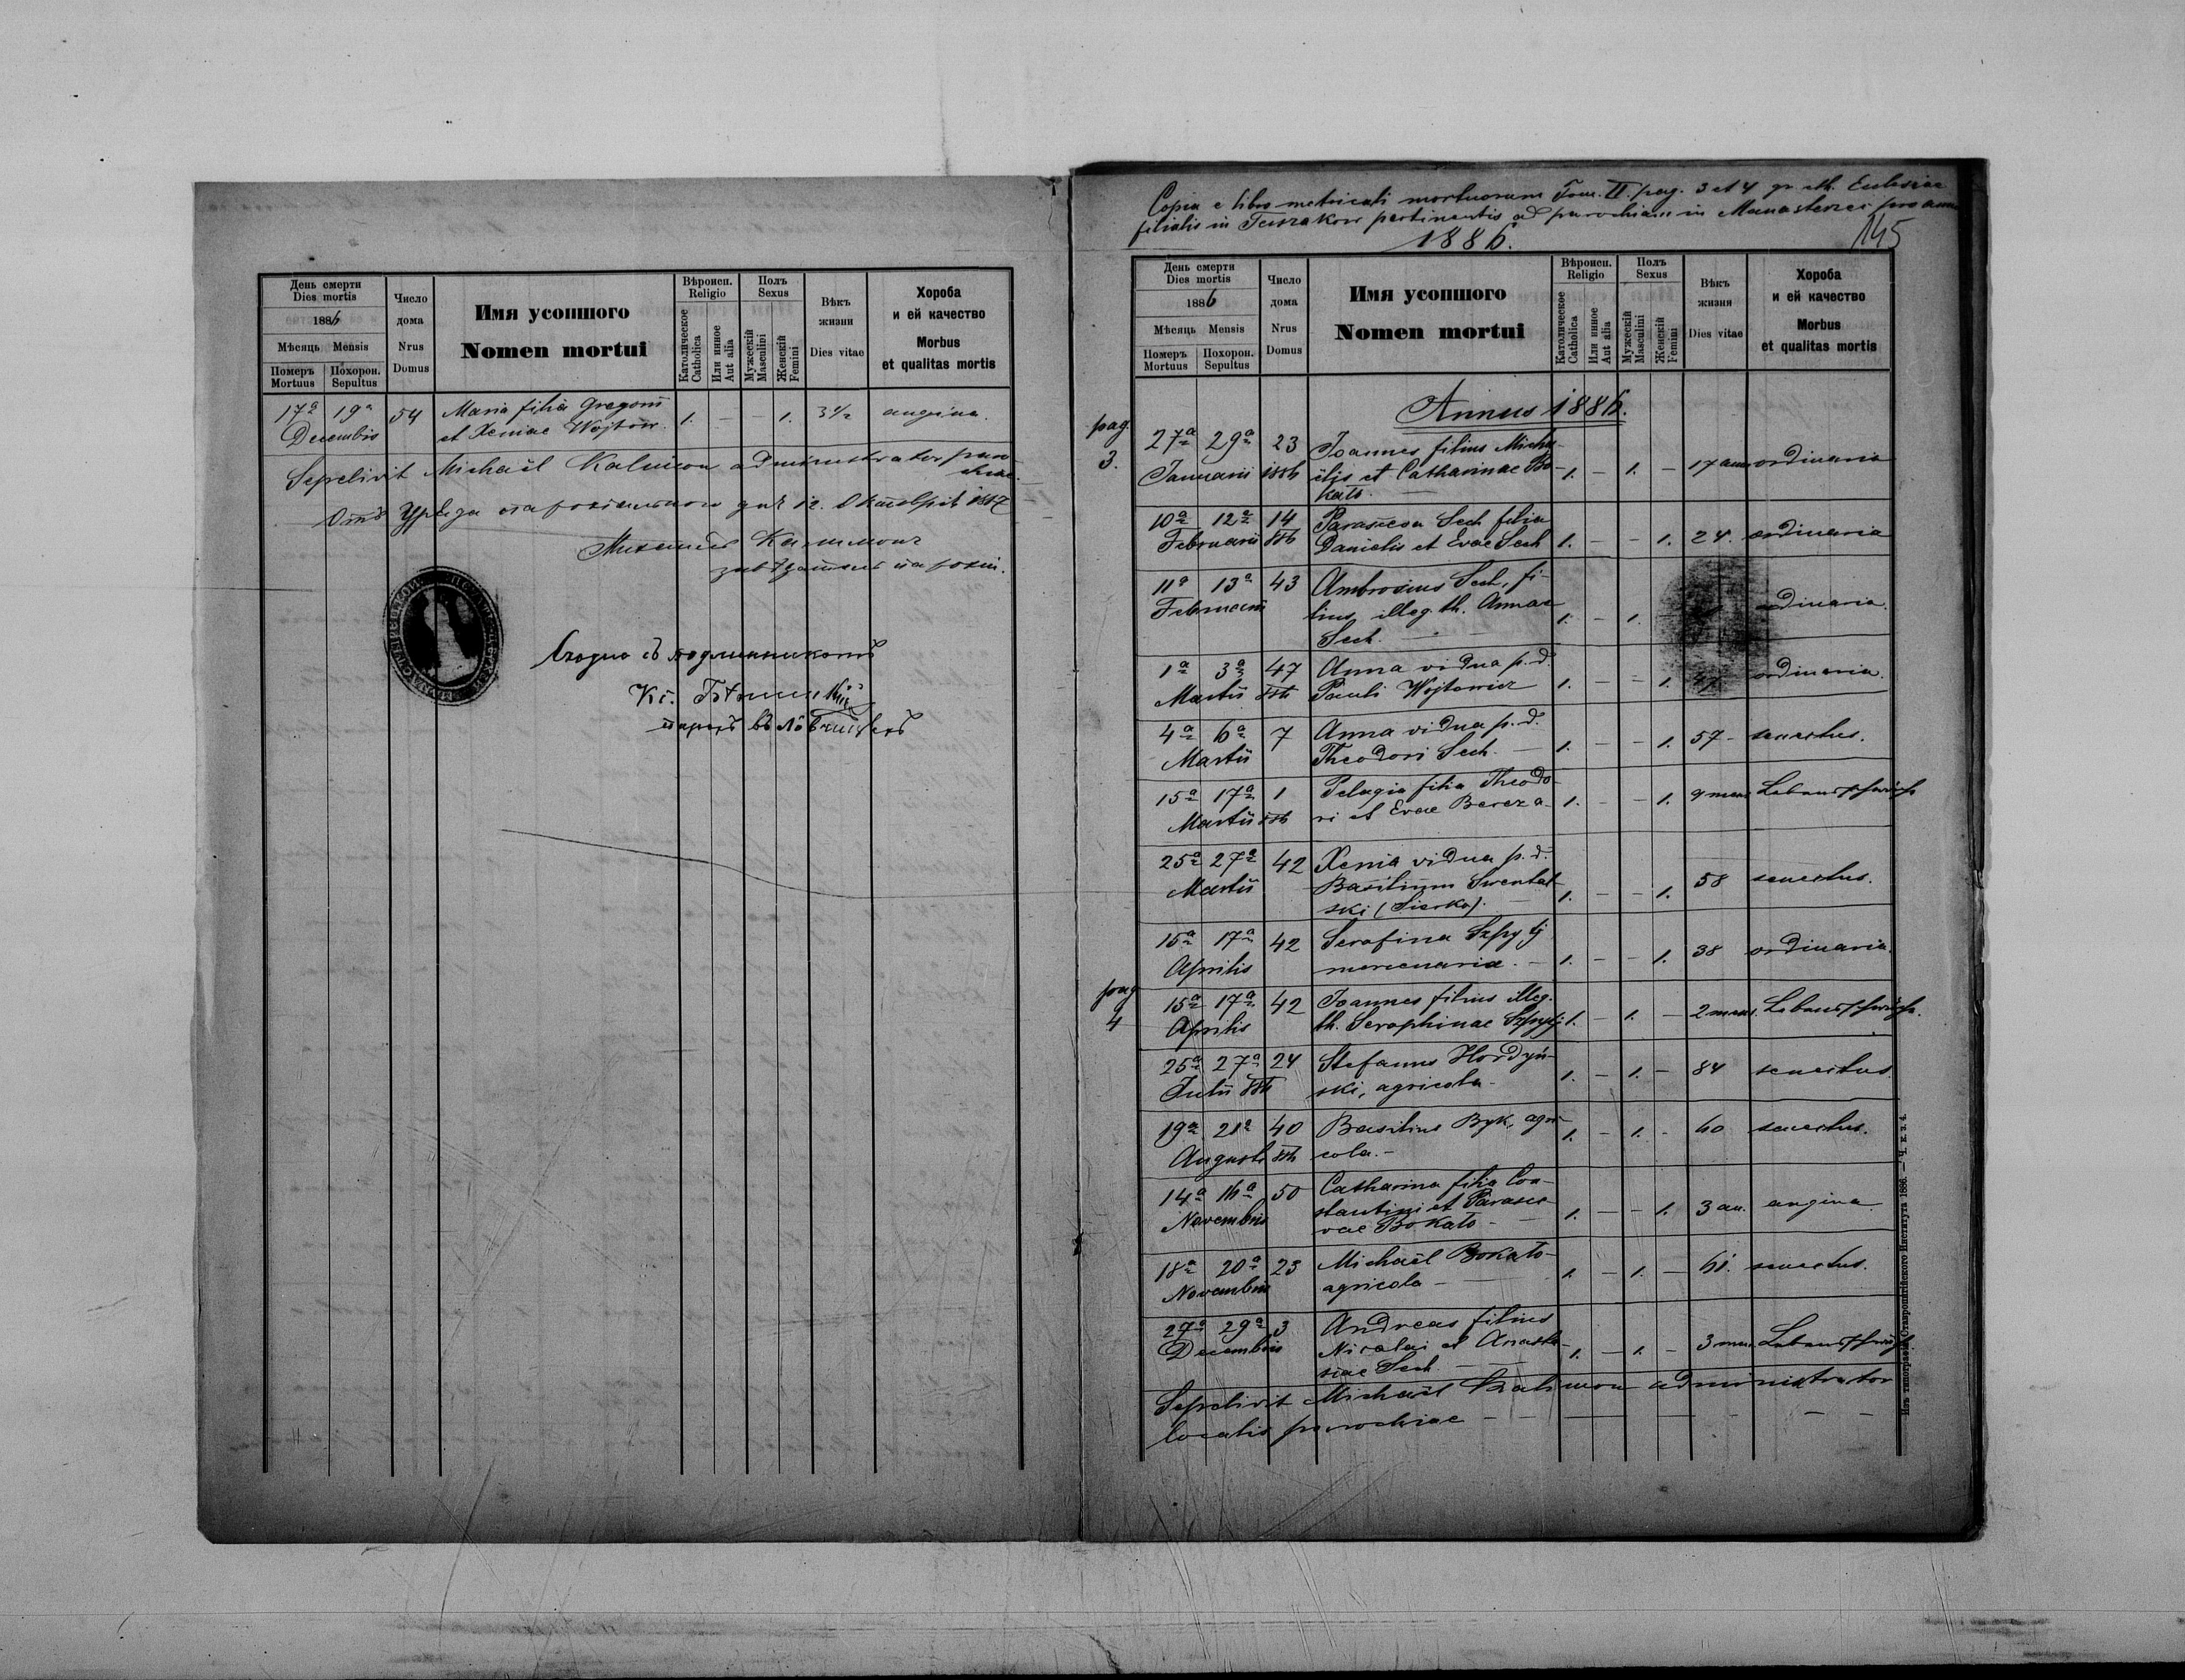 День смерти
Dies mortis
1886
Мѣсяць Mensis
Померъ Mortuus
Похорон. Sepultus
Число дома
Nrus Domus
Имя усопшого
Nomen mortui
Вѣроисп.
Religio
Католическое Catholica
Или инное Aut alia
Полъ
Sexus
Мужескій Masculini
Женскій Femini
Вѣкъ жизни
Dies vitae
Хороба
и ей качество
Morbus
et qualitas mortis
17a 19a 54 Maria filia Gregorii 1. — — 1. 3 1/2 angina.
Decembris et Xeniae Wojtow.
Sepelivit Michaël Kalimon administrator
Отъ Уряда
Михаилъ Калимонъ
Сходно съ подлинникомъ
Copia e libro metricali mortuorum Tom. II. pag. 3 et 4 gr. cth. Ecclesiae
filialis in pertinentis ad parochiam in pro anno
1886.
145
День смерти
Dies mortis
1886
Мѣсяць Mensis
Померъ Mortuus
Похорон. Sepultus
Число дома
Nrus Domus
Имя усопшого
Nomen mortui
Вѣроисп.
Religio
Католическое Catholica
Или инное Aut alia
Полъ
Sexus
Мужескій Masculini
Женскій Femini
Вѣкъ жизни
Dies vitae
Хороба
и ей качество
Morbus
et qualitas mortis
Annus 1886.
pag. 3.
27a 29a 23 Joannes filius Micha-
Januarii 1886 ëlis et Catharinae Bo- 1. — 1. — 17 ann ordinaria
kało.
10a 12a 14 Parasceva Sech filia
Februarii 886 Danielis et Evae Sech 1. — — 1. 24. ordinaria
11a 13a 43 Ambrosius Sech, fi-
Februarii lius illeg. th. Annae 1. — 1. ordinaria.
Sech.
1a 3a 47 Anna vidua p. d.
Martii 886 Pauli Wojtowicz 1. — — 1. ordinaria.
4a 6a 7 Anna vidua p. d.
Martii Theodori Sech. — 1. — — 1. 57 - senectus.
15a 17a 1 Pelagia filia Theodo-
Martii 886 ri et Evae Bereza. 1. — — 1. 9 mens. Lebensschwäche
25a 27a 42 Xenia vidua p. d.
Martii Basilium
ski (Sierka). 1. — — 1. 58 senectus.
15a 17a 42 Serafina Szpytj
Aprilis mercenaria. — 1. — — 1. 38 ordinaria.
pag 4
15a 17a 42 Joannes filius illeg.
Aprilis th. Seraphinae Szpytj 1. — 1. — 2 mens. Lebensschwäche.
25a 27a 24 Stefanus Hordyń-
Julii 886 ski, agricola. 1. — 1. — 84 senectus
19a 21a 40 Basilius Byk, agri-
Augusti 886 cola. — 1. — 1. - 60 senectus.
14a 16a 50 Catharina filia Con-
Novembris stantini et Parasce-
vae Bokało — 1. — — 1. 3 an. angina.
18a 20a 23 Michaël Bokało
Novembris agricola — 1. — 1. — 61. senectus.
27a 29a 3 Andreas filius
Decembris Nicolai et Anasta- 1. — 1. — 3 mens. Lebensschwäche
siae Sech.
Sepelivit Michaël Kalimon administrator
localis parochiae
Изъ типографіи Ставропигійского Института 1886. — Ч. к. з. 4.